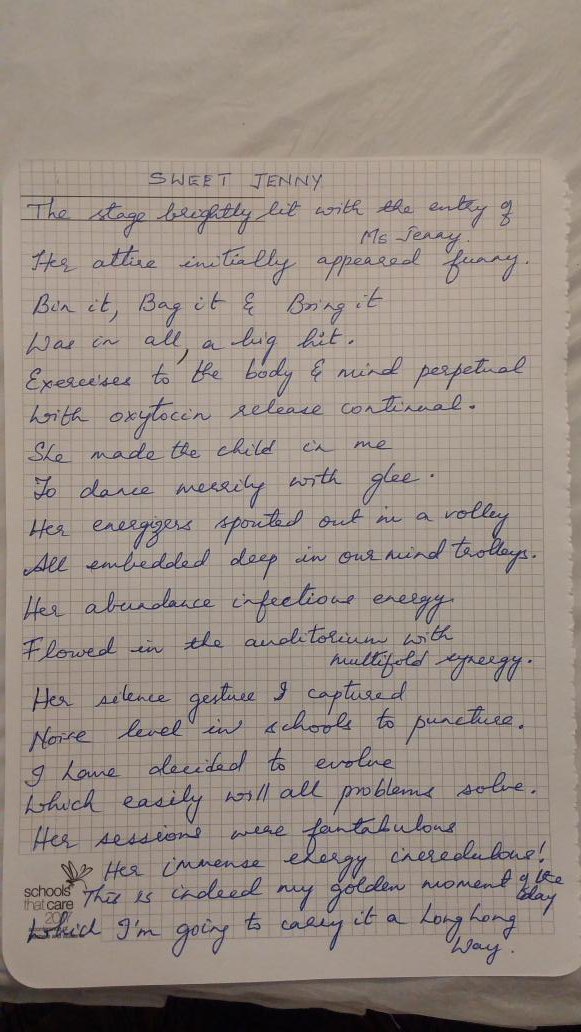 SWEET JENNY
The stage brightly lit with the entry of
Ms Jenny.
Her attire initially appeared funny.
Bin it, Bag it & Bring it
Was in all, a big hit.
Exercises to the body & mind perpetual
With oxytocin release continual.
She made the child in me
To dance merrily with glee.
Her energizers spouted out in a volley
All embedded deep in our mind trolleys.
Her abundance infectious energy
Flowed in the auditorium with
multifold synergy.
Her silence gesture I captured
Noise level in schools to puncture.
I have decided to evolve
Which easily will all problems solve.
Her sessions were fantabulous
Her immense energy incredulous!
This is indeed my golden moment of the
day
Which I'm going to carry it a long long
way.
schools
that care
2017